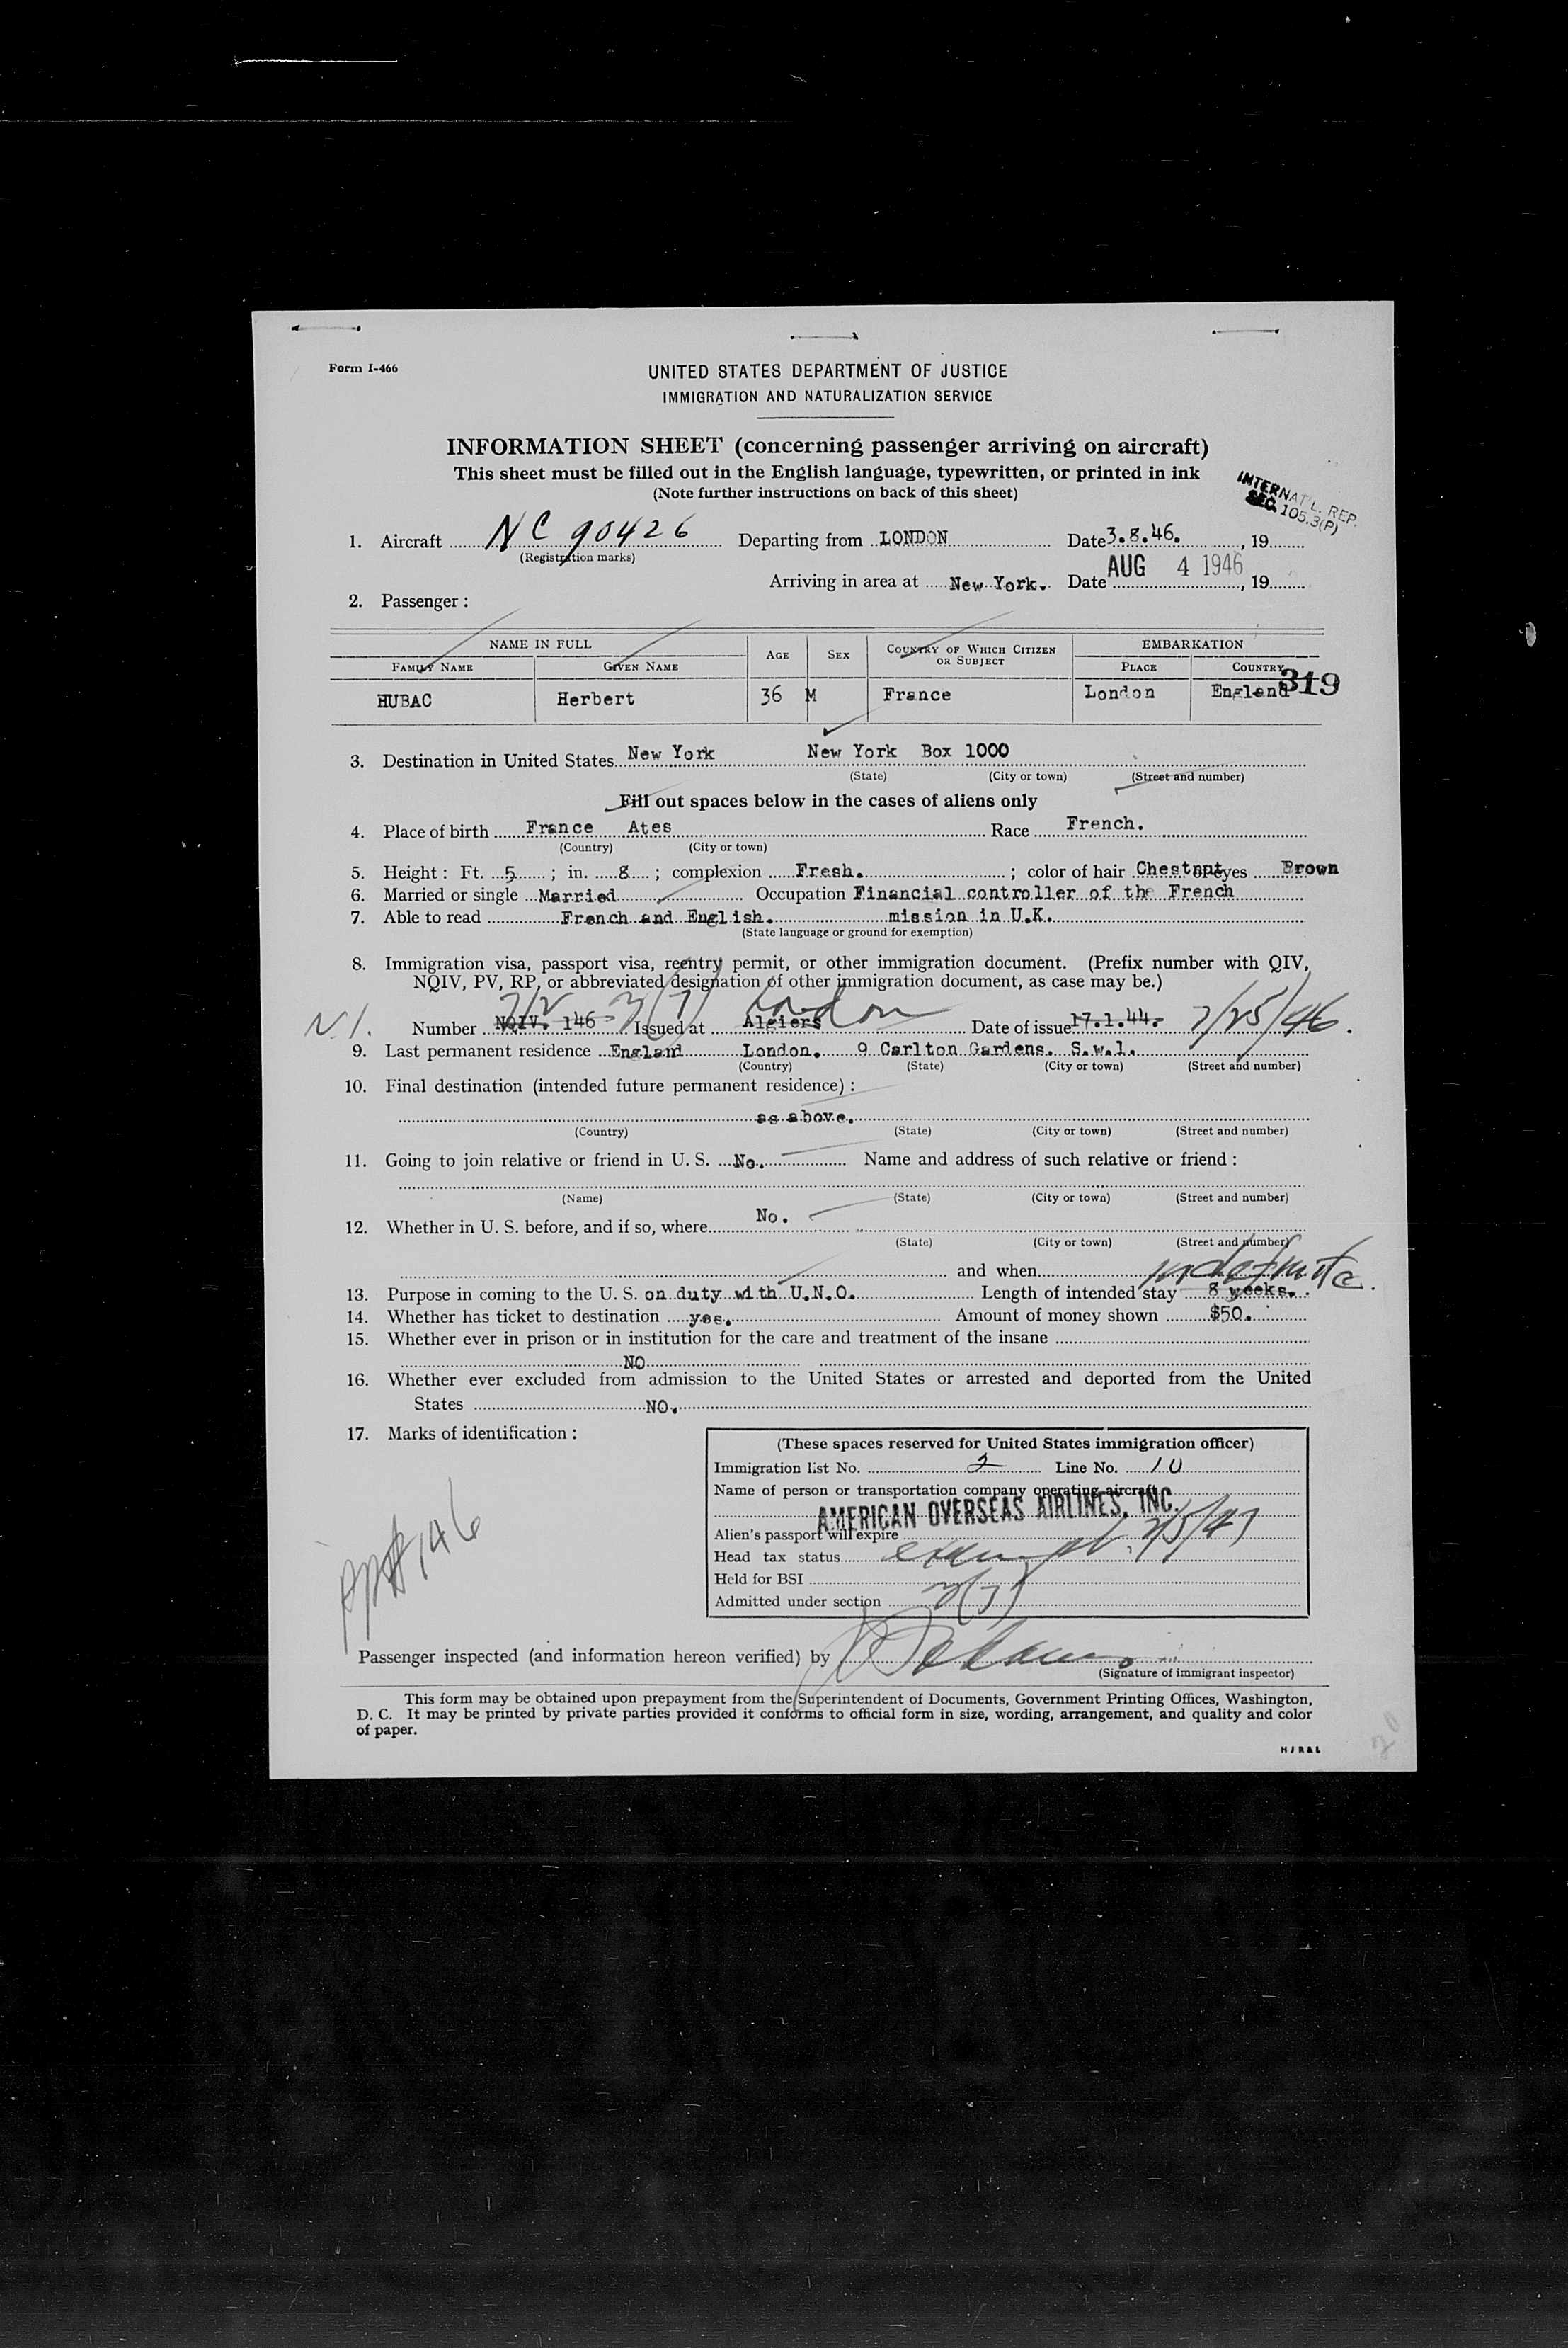 Form I-466
UNITED STATES DEPARTMENT OF JUSTICE
IMMIGRATION AND NATURALIZATION SERVICE
INFORMATION SHEET (concerning passenger arriving on aircraft)
This sheet must be filled out in the English language, typewritten, or printed in ink
(Note further instructions on back of this sheet)
INTERNAT'L. REP.
SEC. 105.3(P)
1. Aircraft NC 90426 Departing from LONDON Date 3.8.46. , 19
(Registration marks)
Arriving in area at New York. Date AUG 4 1946 , 19
2. Passenger :
NAME IN FULL AGE SEX COUNTRY OF WHICH CITIZEN OR SUBJECT EMBARKATION
FAMILY NAME GIVEN NAME PLACE COUNTRY
HUBAC Herbert 36 M France London England 319
3. Destination in United States New York New York Box 1000
(State) (City or town) (Street and number)
Fill out spaces below in the cases of aliens only
4. Place of birth France Ates Race French.
(Country) (City or town)
5. Height : Ft. 5 ; in. 8 ; complexion Fresh. ; color of hair Chestnut eyes Brown
6. Married or single Married Occupation Financial controller of the French
7. Able to read French and English. mission in U.K.
(State language or ground for exemption)
8. Immigration visa, passport visa, reentry permit, or other immigration document. (Prefix number with QIV,
NQIV, PV, RP, or abbreviated designation of other immigration document, as case may be.)
Number NQIV. 146 3(7) Issued at Algiers London Date of issue 17.1.44. 7/25/46.
9. Last permanent residence England London. 9 Carlton Gardens. S.w.1.
(Country) (State) (City or town) (Street and number)
10. Final destination (intended future permanent residence) :
as above.
(Country) (State) (City or town) (Street and number)
11. Going to join relative or friend in U. S. No. Name and address of such relative or friend :
(Name) (State) (City or town) (Street and number)
12. Whether in U. S. before, and if so, where No.
(State) (City or town) (Street and number)
and when
indefinite.
13. Purpose in coming to the U. S. on duty with U.N.O. Length of intended stay 8 weeks.
14. Whether has ticket to destination yes. Amount of money shown $50.
15. Whether ever in prison or in institution for the care and treatment of the insane
NO
16. Whether ever excluded from admission to the United States or arrested and deported from the United
States NO.
17. Marks of identification :
(These spaces reserved for United States immigration officer)
Immigration list No. 2 Line No. 10
Name of person or transportation company operating aircraft
AMERICAN OVERSEAS AIRLINES, INC.
Alien's passport will expire 2/5/47
Head tax status exempt
Held for BSI
Admitted under section 3(7)
Passenger inspected (and information hereon verified) by
(Signature of immigrant inspector)
This form may be obtained upon prepayment from the Superintendent of Documents, Government Printing Offices, Washington,
D. C. It may be printed by private parties provided it conforms to official form in size, wording, arrangement, and quality and color
of paper.
H J R & L